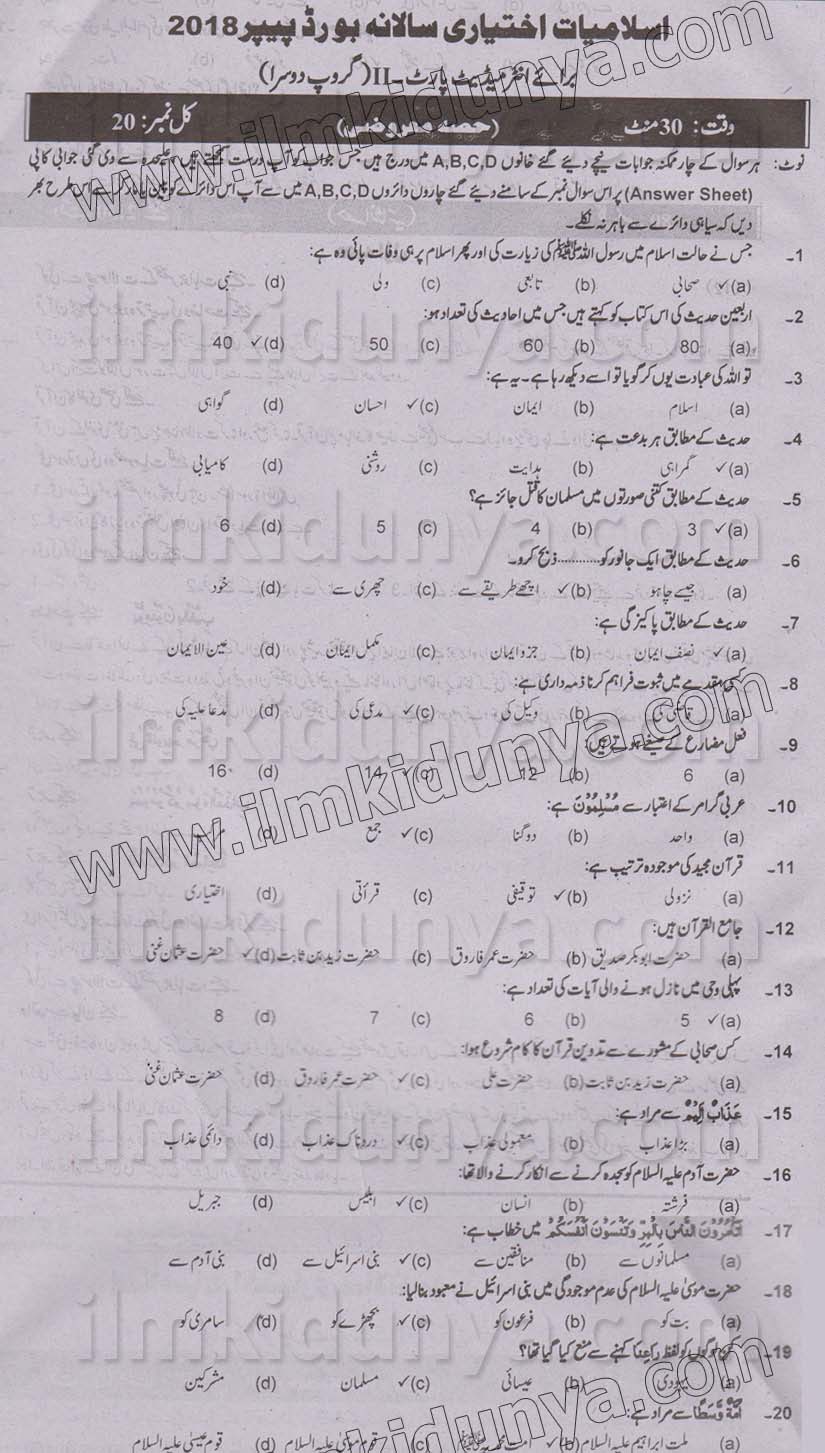 اسلامیات اختیاری سالانہ بورڈ پیپر 2018
برائے انٹرمیڈیٹ پارٹ۔II (گروپ دوسرا)
وقت: 30 منٹ (حصہ معروضی) کل نمبر: 20
نوٹ: ہر سوال کے چار ممکنہ جوابات نیچے دیئے گئے خانوں A,B,C,D میں درج ہیں جس جواب کو آپ درست سمجھتے ہیں، علیحدہ سے دی گئی جوابی کاپی
(Answer Sheet) پر اس سوال نمبر کے سامنے دیئے گئے چاروں دائروں A,B,C,D میں سے آپ اس دائرے کو پین یا مارکر سے اس طرح بھر
دیں کہ سیاہی دائرے سے باہر نہ نکلے۔
1۔ جس نے حالت اسلام میں رسول اللہ ﷺ کی زیارت کی اور پھر اسلام پر ہی وفات پائی وہ ہے:
(a) ✓ صحابی (b) تابعی (c) ولی (d) نبی
2۔ اربعین حدیث کی اس کتاب کو کہتے ہیں جس میں احادیث کی تعداد ہو:
(a) 80 (b) 60 (c) 50 (d) ✓ 40
3۔ تو اللہ کی عبادت یوں کر گویا تو اسے دیکھ رہا ہے۔ یہ ہے:
(a) اسلام (b) ایمان (c) ✓ احسان (d) گواہی
4۔ حدیث کے مطابق ہر بدعت ہے:
(a) ✓ گمراہی (b) ہدایت (c) روشنی (d) کامیابی
5۔ حدیث کے مطابق کتنی صورتوں میں مسلمان کا قتل جائز ہے؟
(a) ✓ 3 (b) 4 (c) 5 (d) 6
6۔ حدیث کے مطابق ایک جانور کو............ ذبح کرو۔
(a) جیسے چاہو (b) ✓ اچھے طریقے سے (c) چھری سے (d) خود
7۔ حدیث کے مطابق پاکیزگی ہے:
(a) ✓ نصف ایمان (b) جزو ایمان (c) مکمل ایمان (d) عین الایمان
8۔ کسی مقدمے میں ثبوت فراہم کرنا ذمہ داری ہے:
(a) قاضی کی (b) وکیل کی (c) ✓ مدعی کی (d) مدعا علیہ کی
9۔ فعل مضارع کے صیغے ہوتے ہیں:
(a) 6 (b) 12 (c) ✓ 14 (d) 16
10۔ عربی گرامر کے اعتبار سے مُسْلِمُوْنَ ہے:
(a) واحد (b) دوگنا (c) ✓ جمع (d)
11۔ قرآن مجید کی موجودہ ترتیب ہے:
(a) نزولی (b) ✓ توقیفی (c) قرأتی (d) اختیاری
12۔ جامع القرآن ہیں:
(a) حضرت ابوبکر صدیق (b) حضرت عمر فاروق (c) حضرت زید بن ثابت (d) ✓ حضرت عثمان غنی
13۔ پہلی وحی میں نازل ہونے والی آیات کی تعداد ہے:
(a) ✓ 5 (b) 6 (c) 7 (d) 8
14۔ کس صحابی کے مشورے سے تدوین قرآن کا کام شروع ہوا:
(a) حضرت زید بن ثابت (b) حضرت علی (c) ✓ حضرت عمر فاروق (d) حضرت عثمان غنی
15۔ عَذَابٌ اَلِیْمٌ سے مراد ہے:
(a) بڑا عذاب (b) معمولی عذاب (c) ✓ دردناک عذاب (d) دائمی عذاب
16۔ حضرت آدم علیہ السلام کو سجدہ کرنے سے انکار کرنے والا تھا:
(a) فرشتہ (b) انسان (c) ✓ ابلیس (d) جبریل
17۔ اَتَأْمُرُوْنَ النَّاسَ بِالْبِرِّ وَتَنْسَوْنَ اَنْفُسَكُمْ میں خطاب ہے:
(a) مسلمانوں سے (b) منافقین سے (c) ✓ بنی اسرائیل سے (d) بنی آدم سے
18۔ حضرت موسیٰ علیہ السلام کی عدم موجودگی میں بنی اسرائیل نے معبود بنا لیا:
(a) بت کو (b) فرعون کو (c) ✓ بچھڑے کو (d) سامری کو
19۔ کن لوگوں کو لفظ رَاعِنَا کہنے سے منع کیا گیا تھا؟
(a) یہودی (b) عیسائی (c) ✓ مسلمان (d) مشرکین
20۔ اُمَّةً وَّسَطًا سے مراد ہے:
(a) ملت ابراہیم علیہ السلام (b) ✓ امت محمدیہ ﷺ (c) قوم موسیٰ علیہ السلام (d) قوم عیسیٰ علیہ السلام
www.ilmkidunya.com
ilmkidunya.com
ilmkidunya.com
ilmkidunya.com
www.ilmkidunya.com
ilmkidunya.com
ilmkidunya.com
ilmkidunya.com
www.ilmkidunya.com